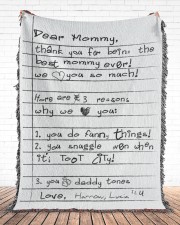 Dear Mommy,
thank you for being the
best mommy ever!
we you so much!
Here are 3 reasons
why we you:
1. you do funny things!
2. you snuggle when when
3. you daddy tones
Love, Harrow, Luna